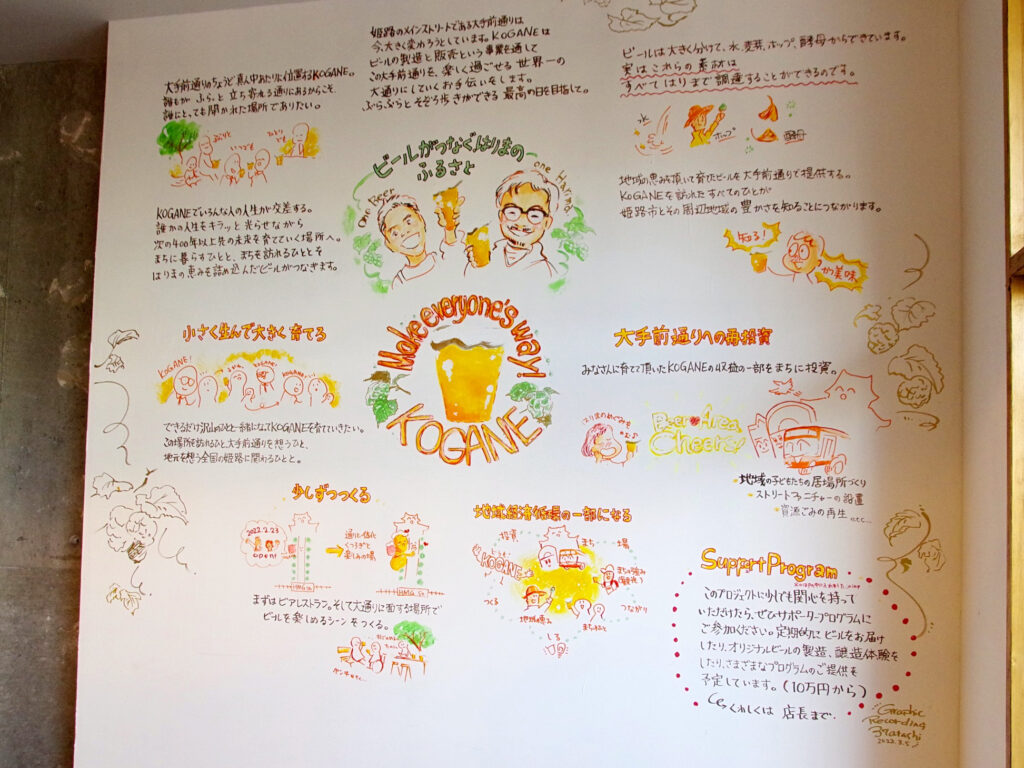 大手前通りのちょうど真ん中あたりに位置するKOGANE。
誰もが ふらっと 立ち寄れる通りにあるからこそ、
誰にとっても開かれた場所でありたい。
KOGANEでいろんな人の人生が交差する。
誰かの人生をキラッと光らせながら
次の400年以上先の未来を育てていく場所へ。
まちに暮らすひとと、まちを訪れるひととを
はりまの恵みを詰め込んだビールがつなぎます。
姫路のメインストリートである大手前通りは
今大きく変わろうとしています。KOGANEは
ビールの製造と販売という事業を通して
この大手前通りを、楽しく過ごせる世界一の
大通りにしていくお手伝いをします。
ぶらぶらとそぞろ歩きができる 最高の日を目指して。
ビールは大きく分けて、水、麦芽、ホップ、酵母からできています。
実はこれらの素材は
すべてはりまで調達することができるのです。
水
ホップ
酵母
地域の恵みを頂いて育ったビールを大手前通りで提供する。
KOGANEを訪れたすべてのひとが
姫路市とその周辺地域の豊かさを知ることにつながります。
知る!
が美味
ビールがつなぐはりまの
ふるさと
One Beer
One Harima
Make everyone's way!
KOGANE
小さく生んで大きく育てる
KOGANE!
できるだけ沢山のひとと一緒になってKOGANEを育てていきたい。
この場所を訪れるひと、大手前通りを想うひと、
地元を想う全国の姫路に関わるひとと。
大手前通りへの再投資
みなさんに育てて頂いたKOGANEの収益の一部をまちに投資。
はりまのめぐみ
Beer Area
Cheers
地域の子どもたちの居場所づくり
ストリートファニチャーの設置
資源ごみの再生
etc...
少しずつつくる
2022.2.23
open!
通りと一体化
くつろぎと
楽しみの場
まずはビアレストラン。そして大通りに面する場所で
ビールを楽しめるシーンをつくる。
地域経済循環の一部になる
投資
まち
場
KOGANE
つくる
つながり
地域の恵み
しる
Support Program
このプロジェクトに少しでも関心を持って
いただけたら、ぜひサポータープログラムに
ご参加ください。定期的にビールをお届け
したり、オリジナルビールの製造、醸造体験を
したり、さまざまなプログラムのご提供を
予定しています。(10万円から)
くわしくは 店長まで.
Graphic
Recording
2022.3.5